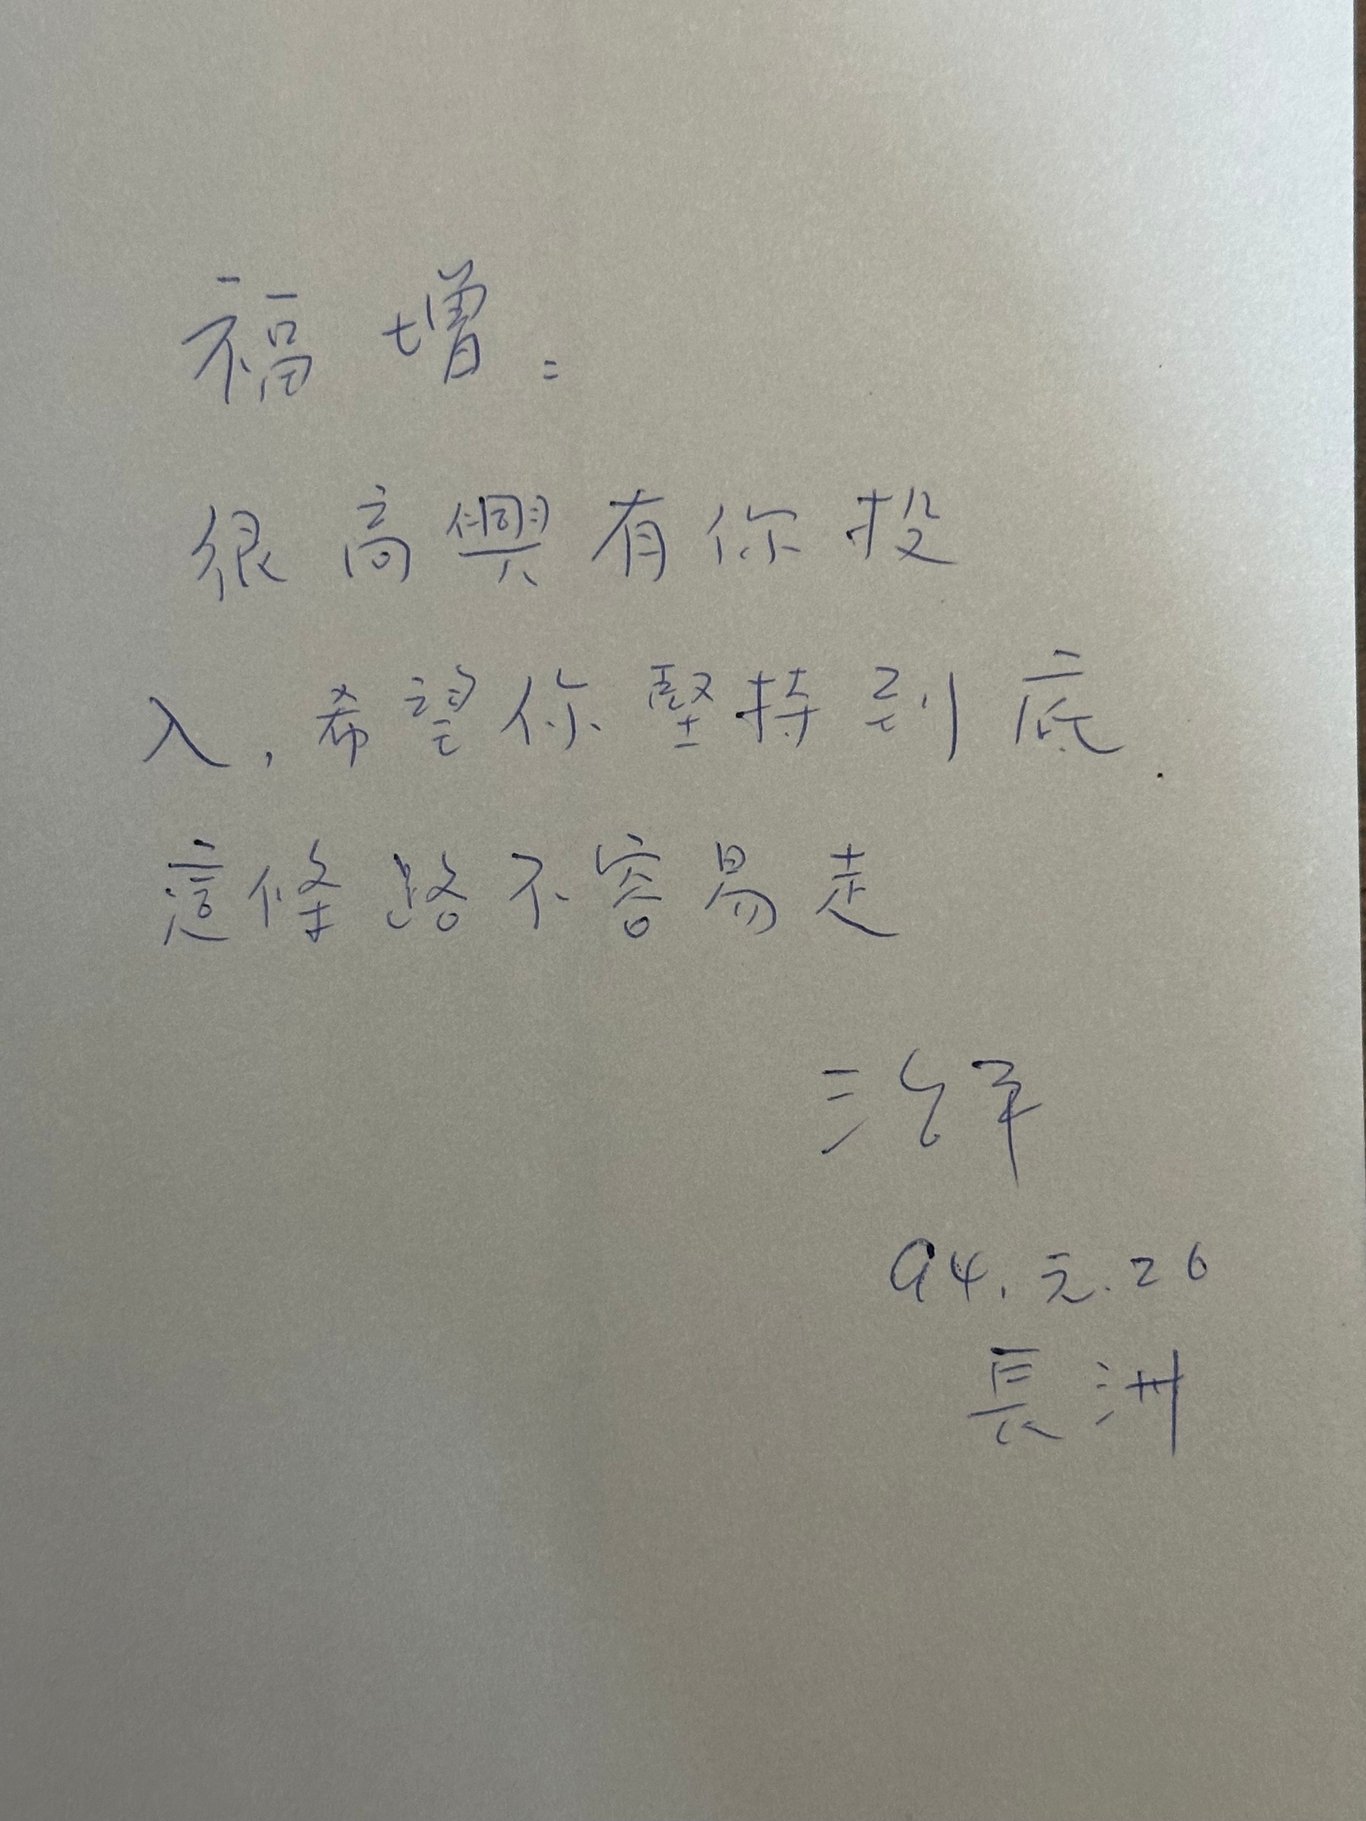 福增：
很高興有你投
入，希望你堅持到底．
這條路不容易走
治平
94.元.26
長洲